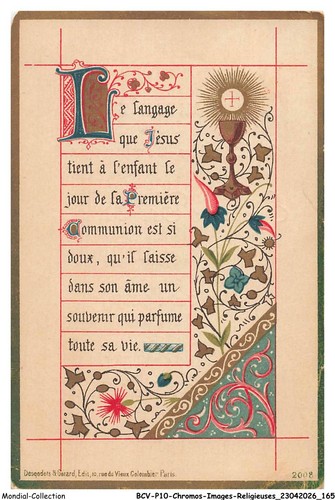 Le langage
que Jésus
tient à l'enfant le
jour de la Première
Communion est si
doux, qu'il laisse
dans son âme un
souvenir qui parfume
toute sa vie.
Desgodets & Gérard, Edit, 10, rue du Vieux Colombier Paris
2008
Mondial-Collection
BCV-P10-Chromos-Images-Religieuses_23042026_165